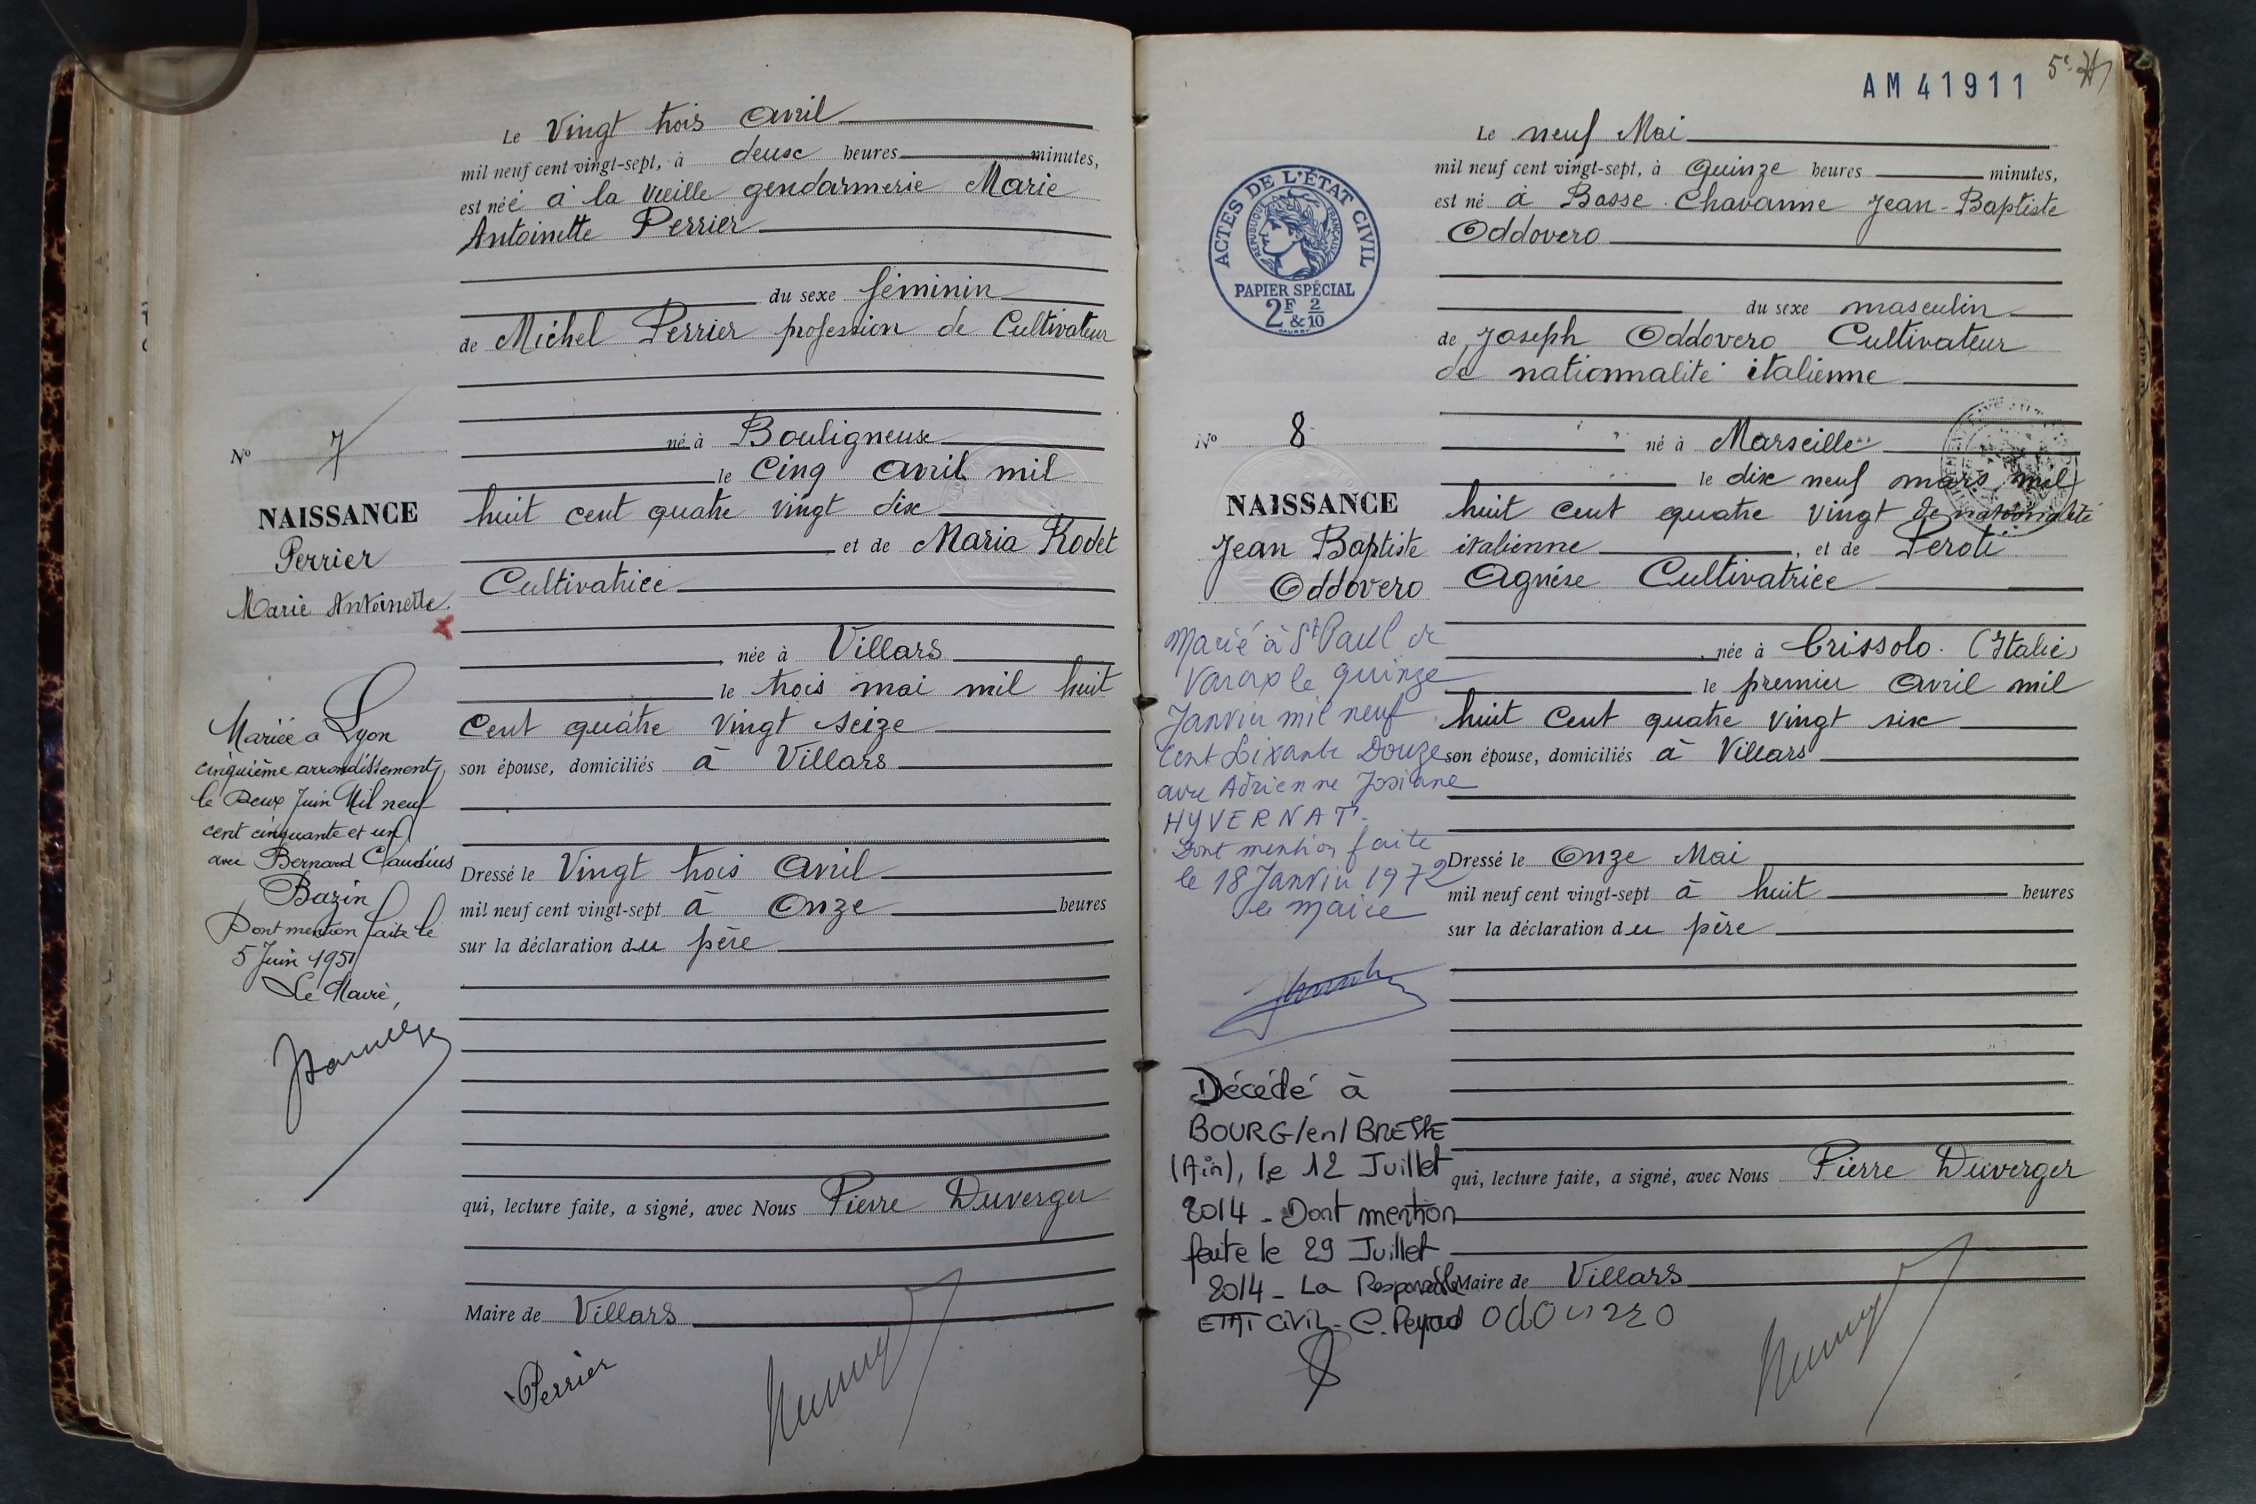 Le Vingt trois Avril
mil neuf cent vingt-sept, à deux heures minutes,
est née à la vieille gendarmerie Marie
Antoinette Perrier
du sexe féminin
de Michel Perrier profession de Cultivateur
né à Bouligneux
le cinq avril mil
huit cent quatre vingt dix
et de Maria Rodet
Cultivatrice
née à Villars
le trois mai mil huit
cent quatre vingt seize
son épouse, domiciliés à Villars
Dressé le Vingt trois Avril
mil neuf cent vingt-sept à Onze heures
sur la déclaration du père
qui, lecture faite, a signé, avec Nous Pierre Duverger
Maire de Villars
Perrier
No 7
NAISSANCE
Perrier
Marie Antoinette
Mariée a Lyon
cinquième arrondissement
le Deux Juin Mil neuf
cent cinquante et un
avec Bernard Claudius
Bazin
Dont mention faite le
5 Juin 1951
Le Maire,
AM 41911
ACTES DE L'ÉTAT CIVIL
RÉPUBLIQUE FRANÇAISE
PAPIER SPÉCIAL
2F & 2/10
Le neuf Mai
mil neuf cent vingt-sept, à Quinze heures minutes,
est né à Basse Chavanne Jean-Baptiste
Oddovero
du sexe masculin
de Joseph Oddovero Cultivateur
de nationnalité italienne
né à Marseille
le dix neuf mars mil
huit cent quatre vingt de nationalité
italienne, et de Peroti
Agnése Cultivatrice
née à Crissolo (Italie)
le premier Avril mil
huit cent quatre vingt six
son épouse, domiciliés à Villars
Dressé le Onze Mai
mil neuf cent vingt-sept à huit heures
sur la déclaration du père
qui, lecture faite, a signé, avec Nous Pierre Duverger
Maire de Villars
No 8
NAISSANCE
Jean Baptiste
Oddovero
Marié à St Paul de
Varax le quinze
Janvier mil neuf
Cent Soixante Douze
avec Adrienne Josiane
HYVERNAT.
Dont mention faite
le 18 Janvier 1972
le maire
Décédé à
BOURG/en/BRESSE
(Ain), le 12 Juillet
2014 - Dont mention
faite le 29 Juillet
2014 - La Responsable
ETAT CIVIL - C.